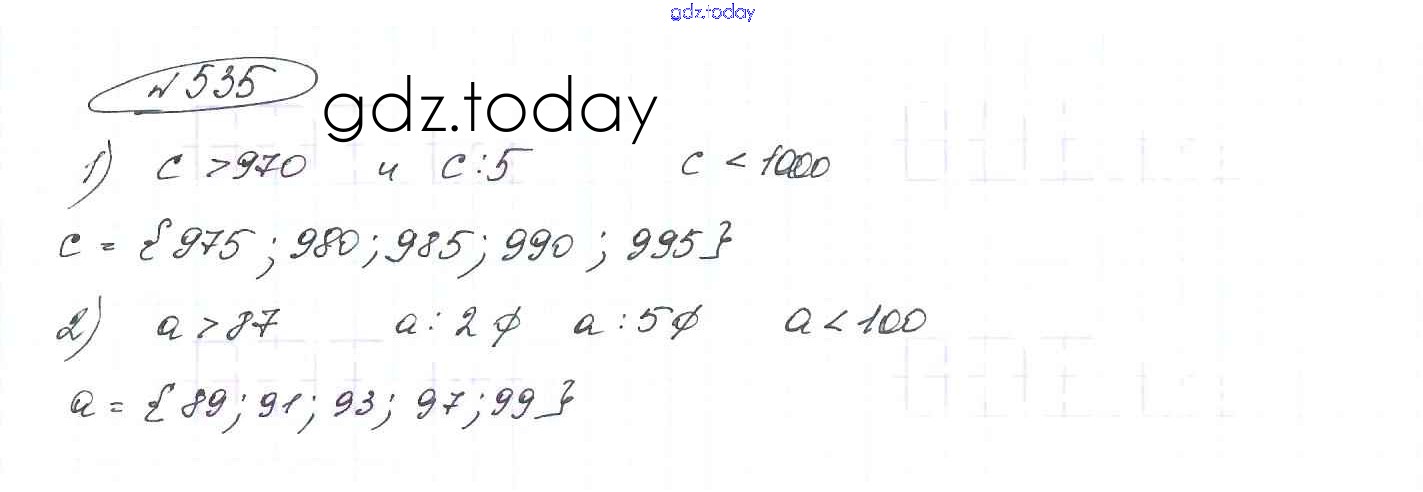 gdz.today
№535
gdz.today
1) c > 970 и c : 5 c < 1000
c = {975 ; 980 ; 985 ; 990 ; 995}
2) a > 87 a : 2 ∅ a : 5 ∅ a < 100
a = {89 ; 91 ; 93 ; 97 ; 99}